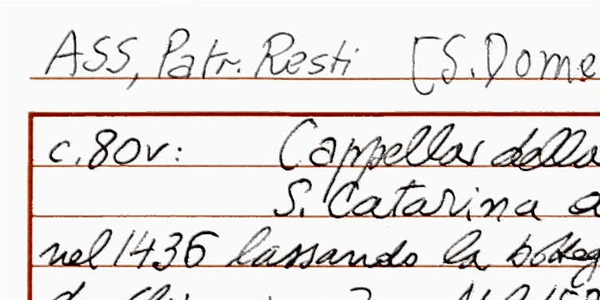 ASS, Patr. Resti [S. Dome
c. 80v: Cappella dalla
S. Catarina a
nel 1436 lassando la botteg